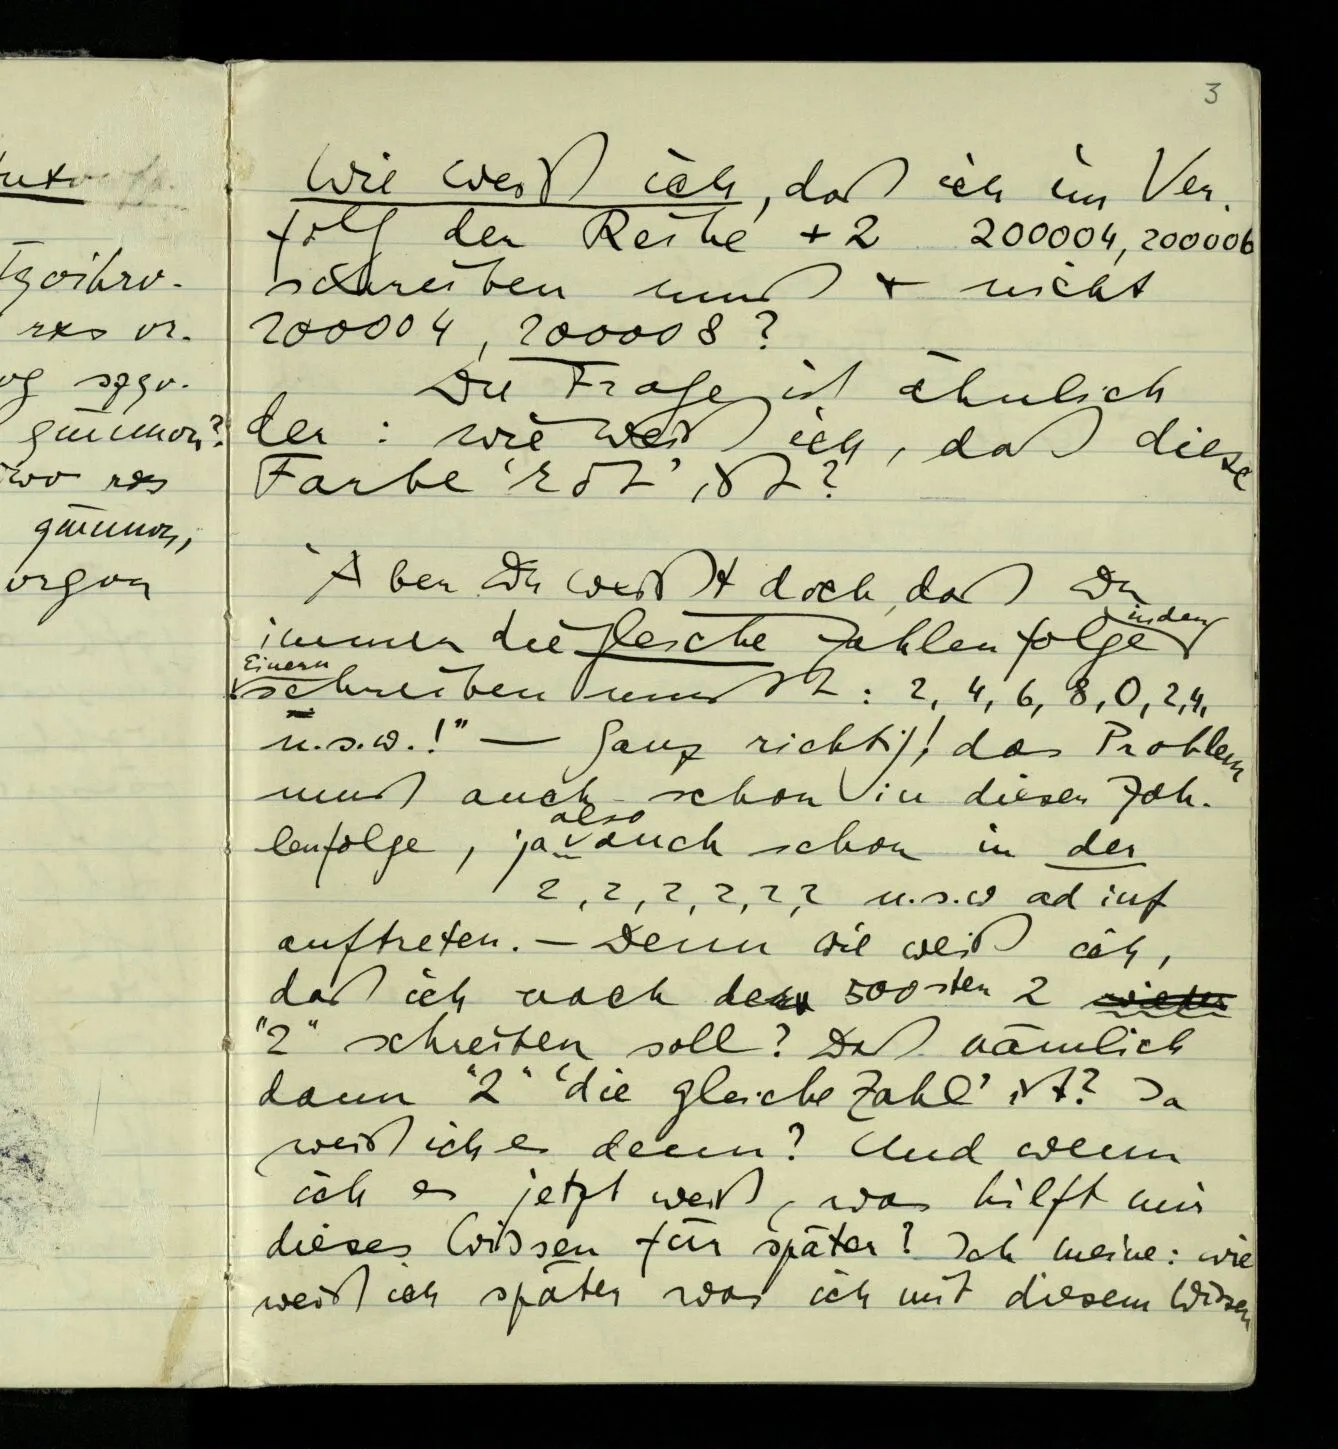 3
Wie weiß ich, daß ich im Ver-
folg der Reihe +2 200004, 200006
schreiben muß & nicht
200004, 200008?
Die Frage ist ähnlich
der: wie weiß ich, daß diese
Farbe ‘rot’ ist?
"Aber Du weißt doch, daß Du
immer die gleiche Zahlenfolge in den
Einern
schreiben mußt: 2, 4, 6, 8, 0, 2, 4,
u.s.w.!" — Ganz richtig! das Problem
muß auch schon in dieser Zah-
lenfolge, ja also auch schon in der
2, 2, 2, 2, 2, 2 u.s.w ad inf
auftreten. — Denn wie weiß ich,
daß ich nach der 500sten 2 wieder
"2" schreiben soll? Daß nämlich
dann "2" ‘die gleiche Zahl’ ist? Ja
weiß ich es denn? Und wenn
ich es jetzt weiß, was hilft mir
dieses Wissen für später? Ich meine: wie
weiß ich später was ich mit diesem Wissen